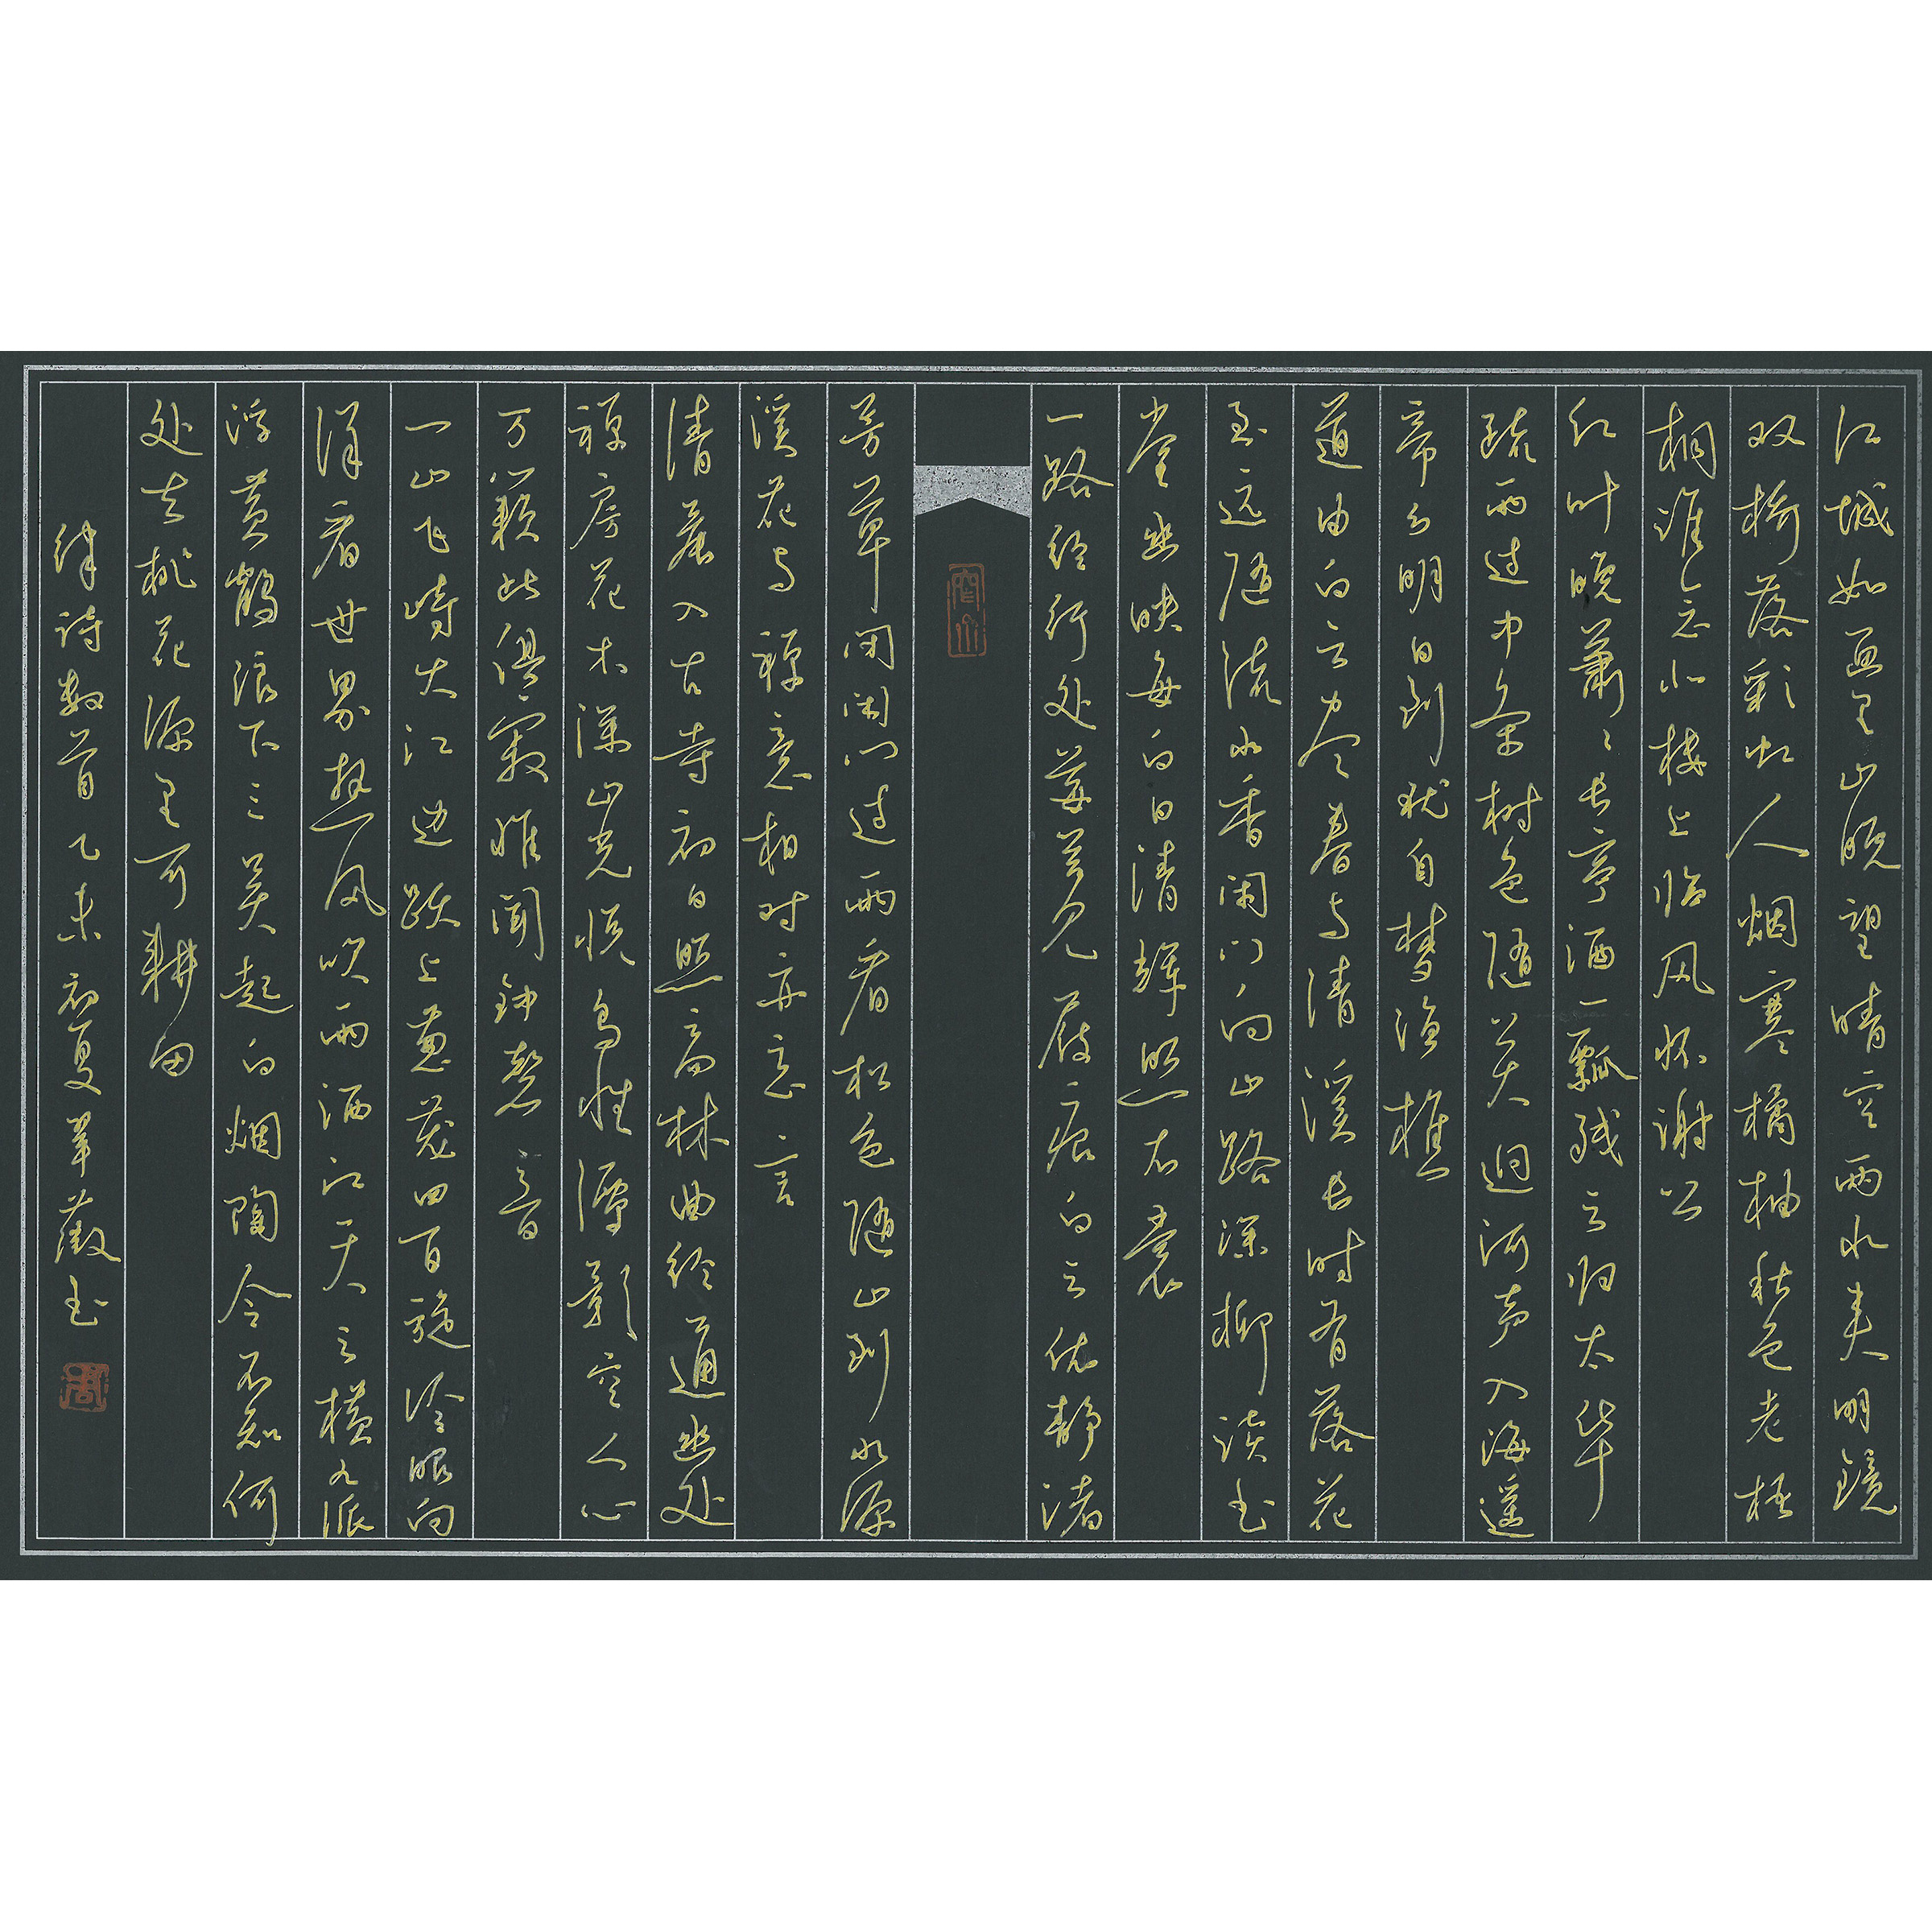 江城如画里山晚望晴空两水夹明镜
双桥落彩虹人烟寒橘柚秋色老梧
桐谁念北楼上临风怀谢公
红叶晚萧〻长亭酒一瓢残云归太华
疏雨过中条树色随关迥河声入海遥
帝乡明日到犹自梦渔樵
道由白云尽春与清溪长时有落花
至远随流水香闲门向山路深柳读书
堂幽映每白日清辉照衣裳
一路经行处莓苔见屐痕白云依静渚
芳草闭闲门过雨看松色随山到水源
溪花与禅意相对亦忘言
清晨入古寺初日照高林曲径通幽处
禅房花木深山光悦鸟性潭影空人心
万籁此俱寂惟闻钟磬音
一山飞峙大江边跃上葱茏四百旋冷眼向
洋看世界热风吹雨洒江天云横九派
浮黄鹤浪下三吴起白烟陶令不知何
处去桃花源里可耕田
律诗数首 乙未初夏 薇书